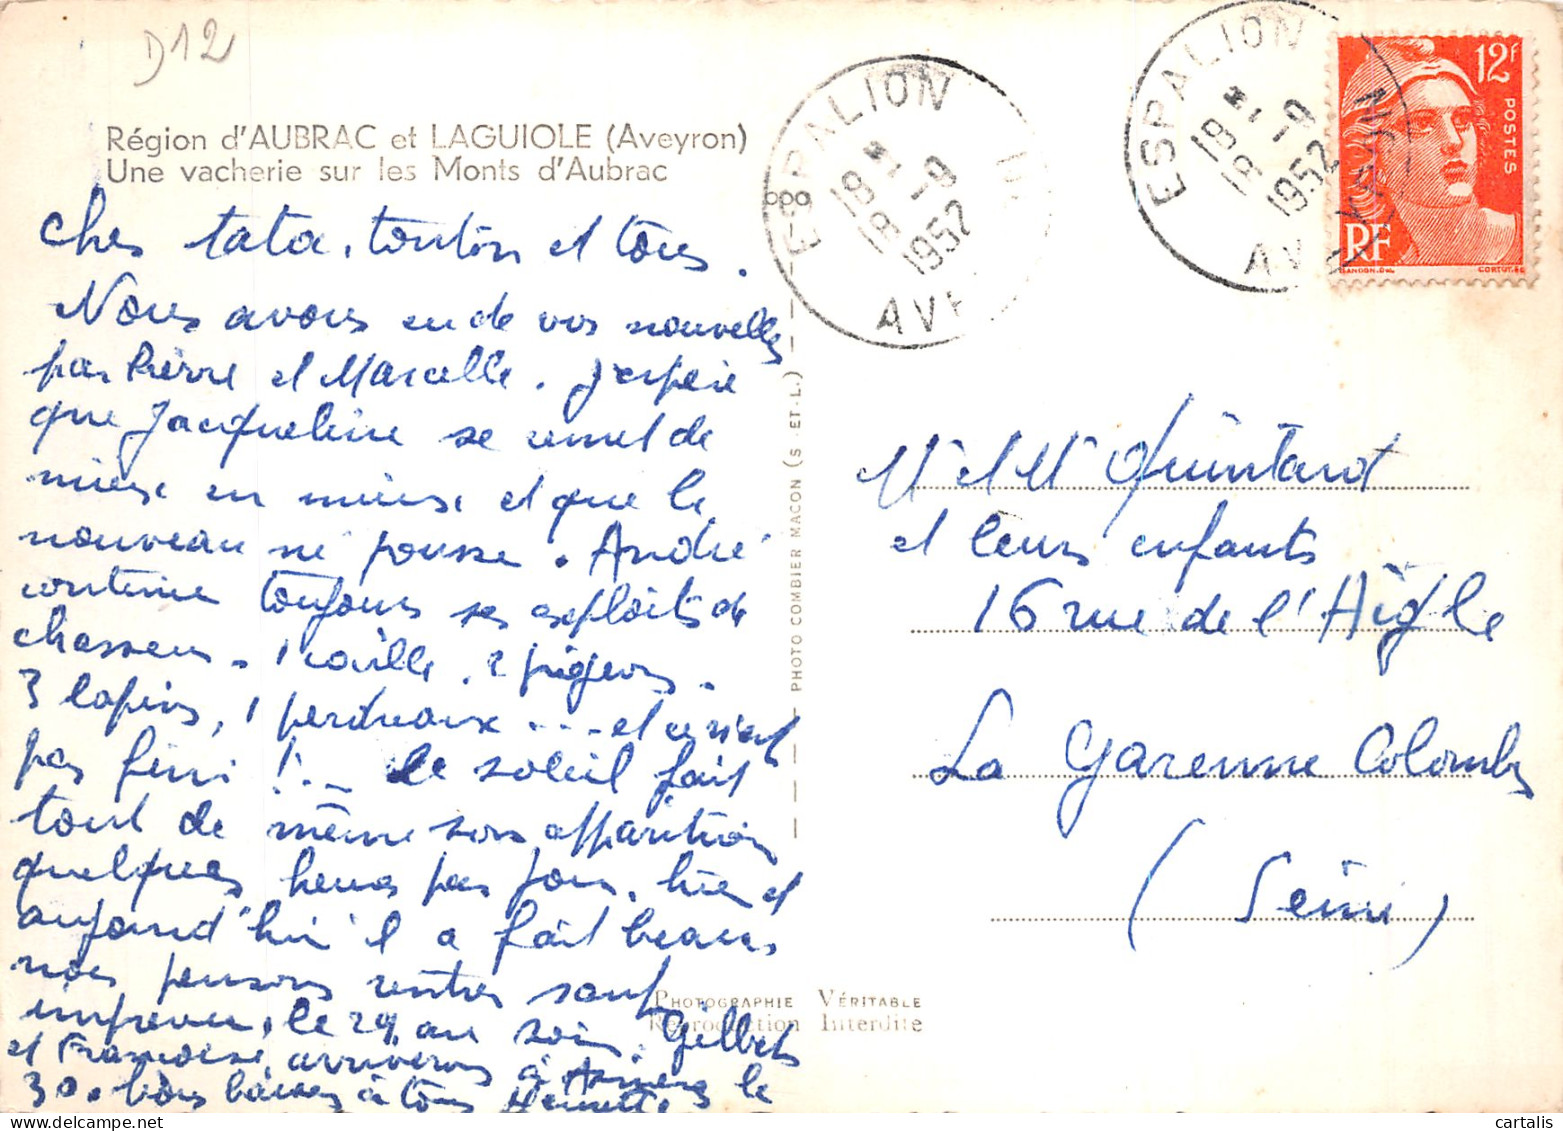 D12
Région d'AUBRAC et LAGUIOLE (Aveyron)
Une vacherie sur les Monts d'Aubrac
Chers tata, tonton et tous.
Nous avons eu de vos nouvelles
par Pierre et Marcelle. J'espère
que Jacqueline se remet de
mieux en mieux et que le
nouveau né pousse. André
continue toujours ses exploits de
chasseur. 1 caille, 2 pigeons.
3 lapins, 1 perdreaux ... et ce n'est
pas fini !.. Le soleil fait
tout de même son apparition
quelques heures par jour. hier et
aujourd'hui il a fait beau
nous pensons rentrer sauf
imprévu, le 29 au soir. Gilbert
et Françoise arriverons à Asnières le
30. Bons baisers à tous Henriette
ESPALION
18 H
1-9
1952
AVE
ESPALION
18 H
1-9
1952
AVEYRON
12F
POSTES
RF
GANDON.DEL
CORTOT.SC
PHOTO COMBIER MACON (S.-ET-L.)
Mr et Me Quintard
et leurs enfants
16 rue de l'Aigle
La Garenne Colombes
(Seine)
PHOTOGRAPHIE VÉRITABLE
Reproduction Interdite
cartalis